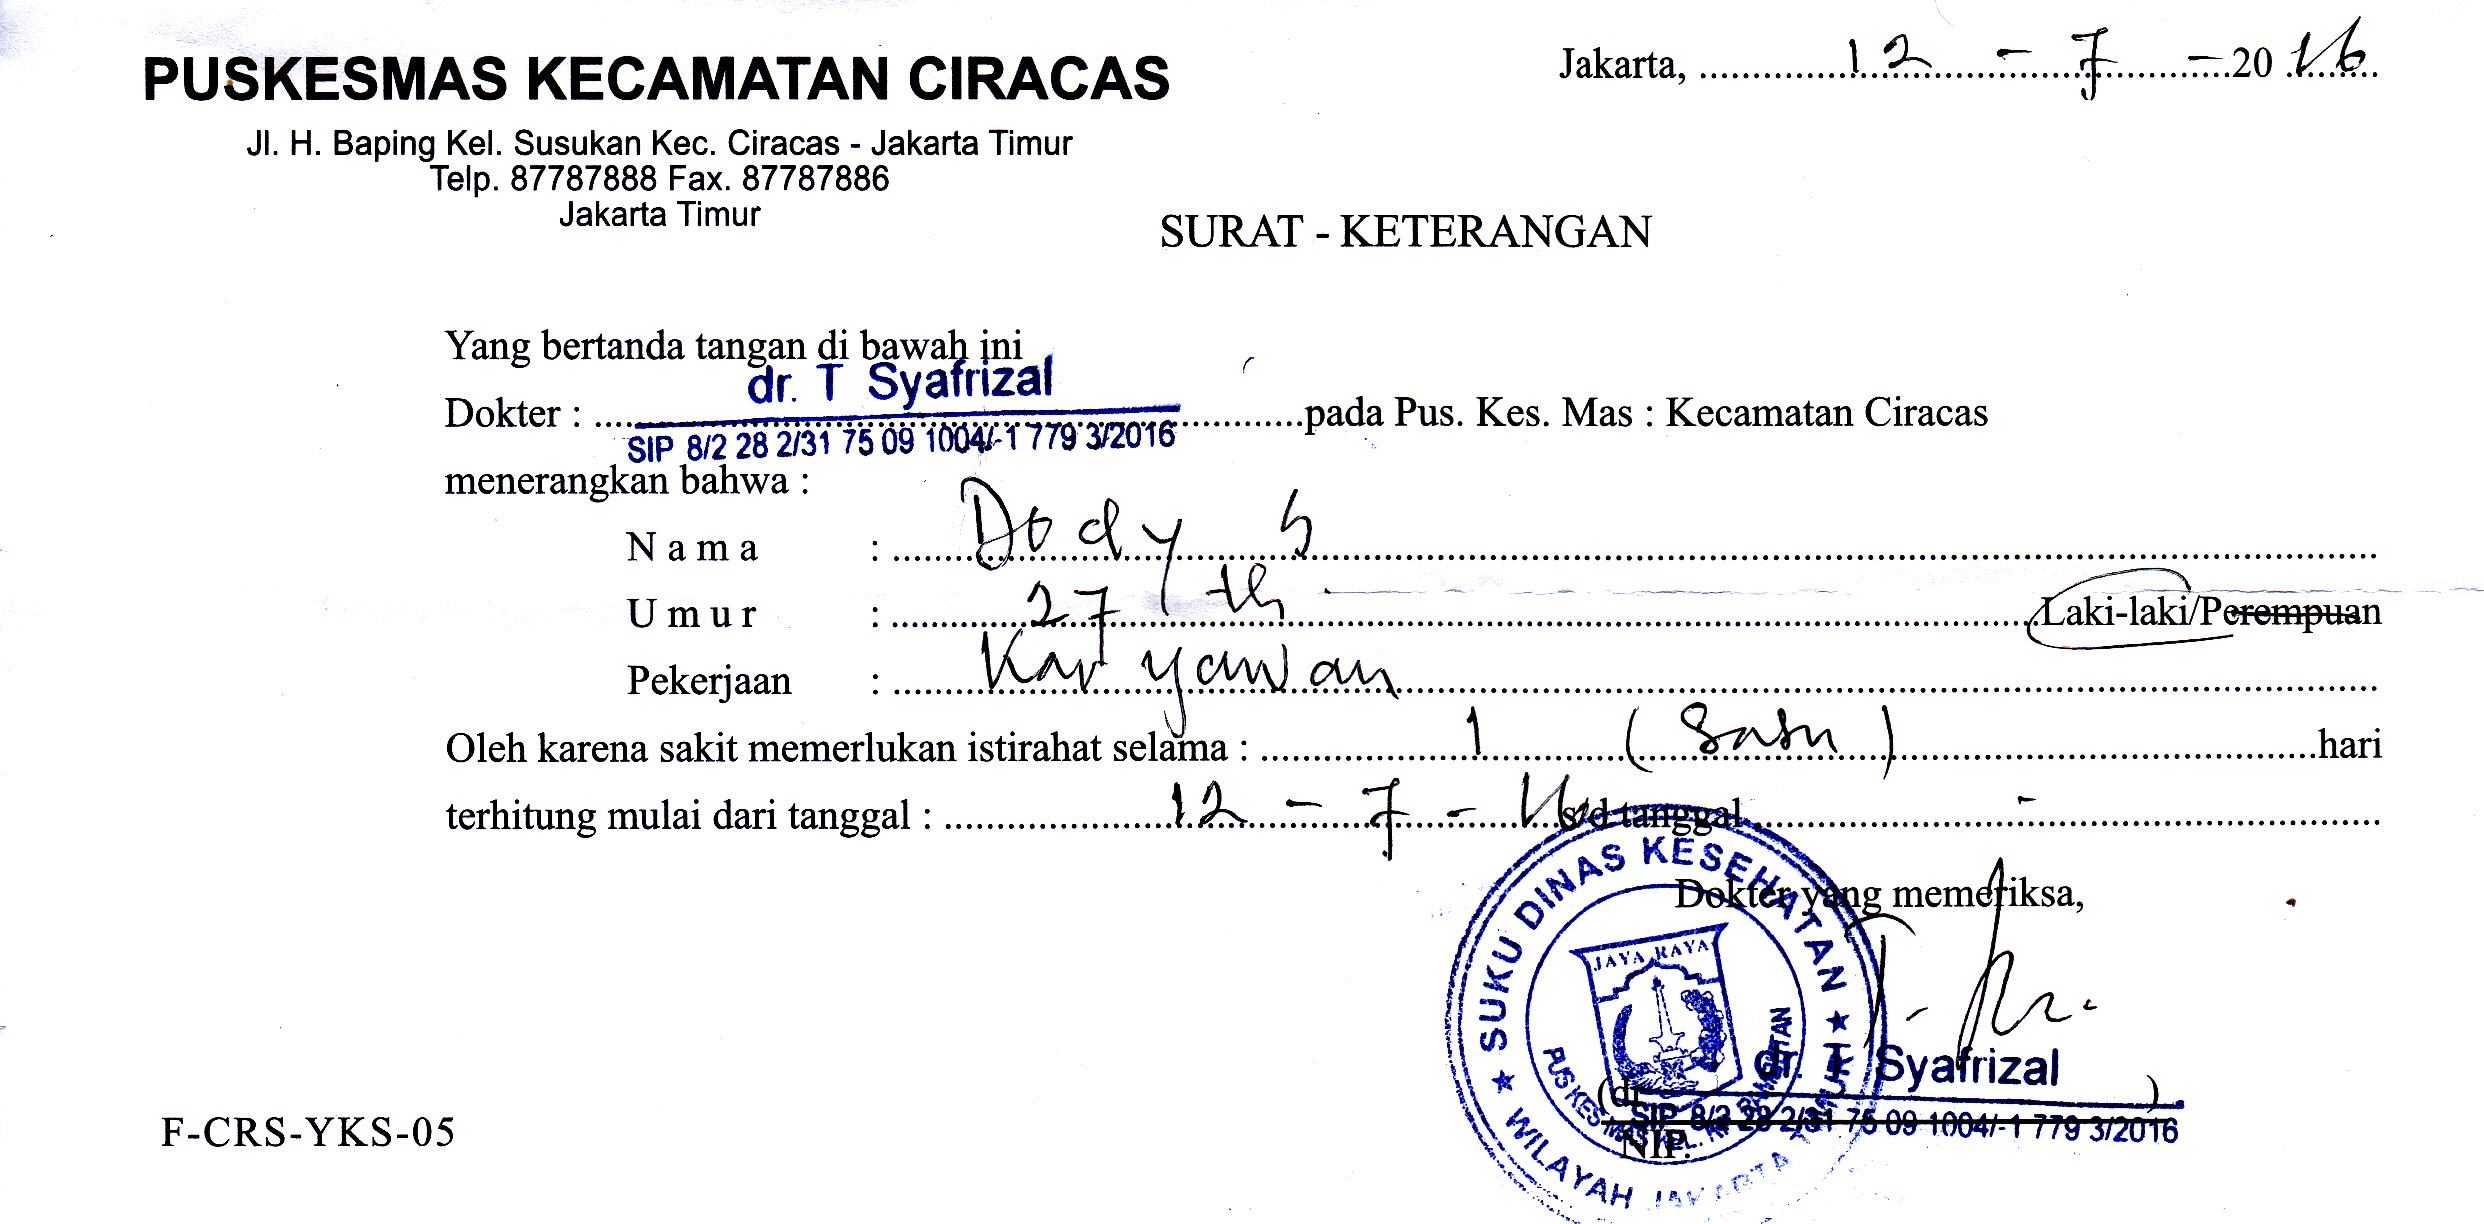 PUSKESMAS KECAMATAN CIRACAS
Jl. H. Baping Kel. Susukan Kec. Ciracas - Jakarta Timur
Telp. 87787888 Fax. 87787886
Jakarta Timur
Jakarta, 12 - 7 - 20 16
SURAT - KETERANGAN
Yang bertanda tangan di bawah ini
dr. T Syafrizal
Dokter : pada Pus. Kes. Mas : Kecamatan Ciracas
SIP 8/2 28 2/31 75 09 1004/-1 779 3/2016
menerangkan bahwa :
Nama : Dody S
Umur : 27 th Laki-laki/Perempuan
Pekerjaan : Karyawan
Oleh karena sakit memerlukan istirahat selama : 1 (Satu) hari
terhitung mulai dari tanggal : 12 - 7 - 16 s/d tanggal -
Dokter yang memeriksa,
SUKU DINAS KESEHATAN
JAYA RAYA
PUSKESMAS KEL.
WILAYAH JAKARTA
dr. T Syafrizal
(dr. )
SIP 8/2 28 2/31 75 09 1004/-1 779 3/2016
NIP.
F-CRS-YKS-05